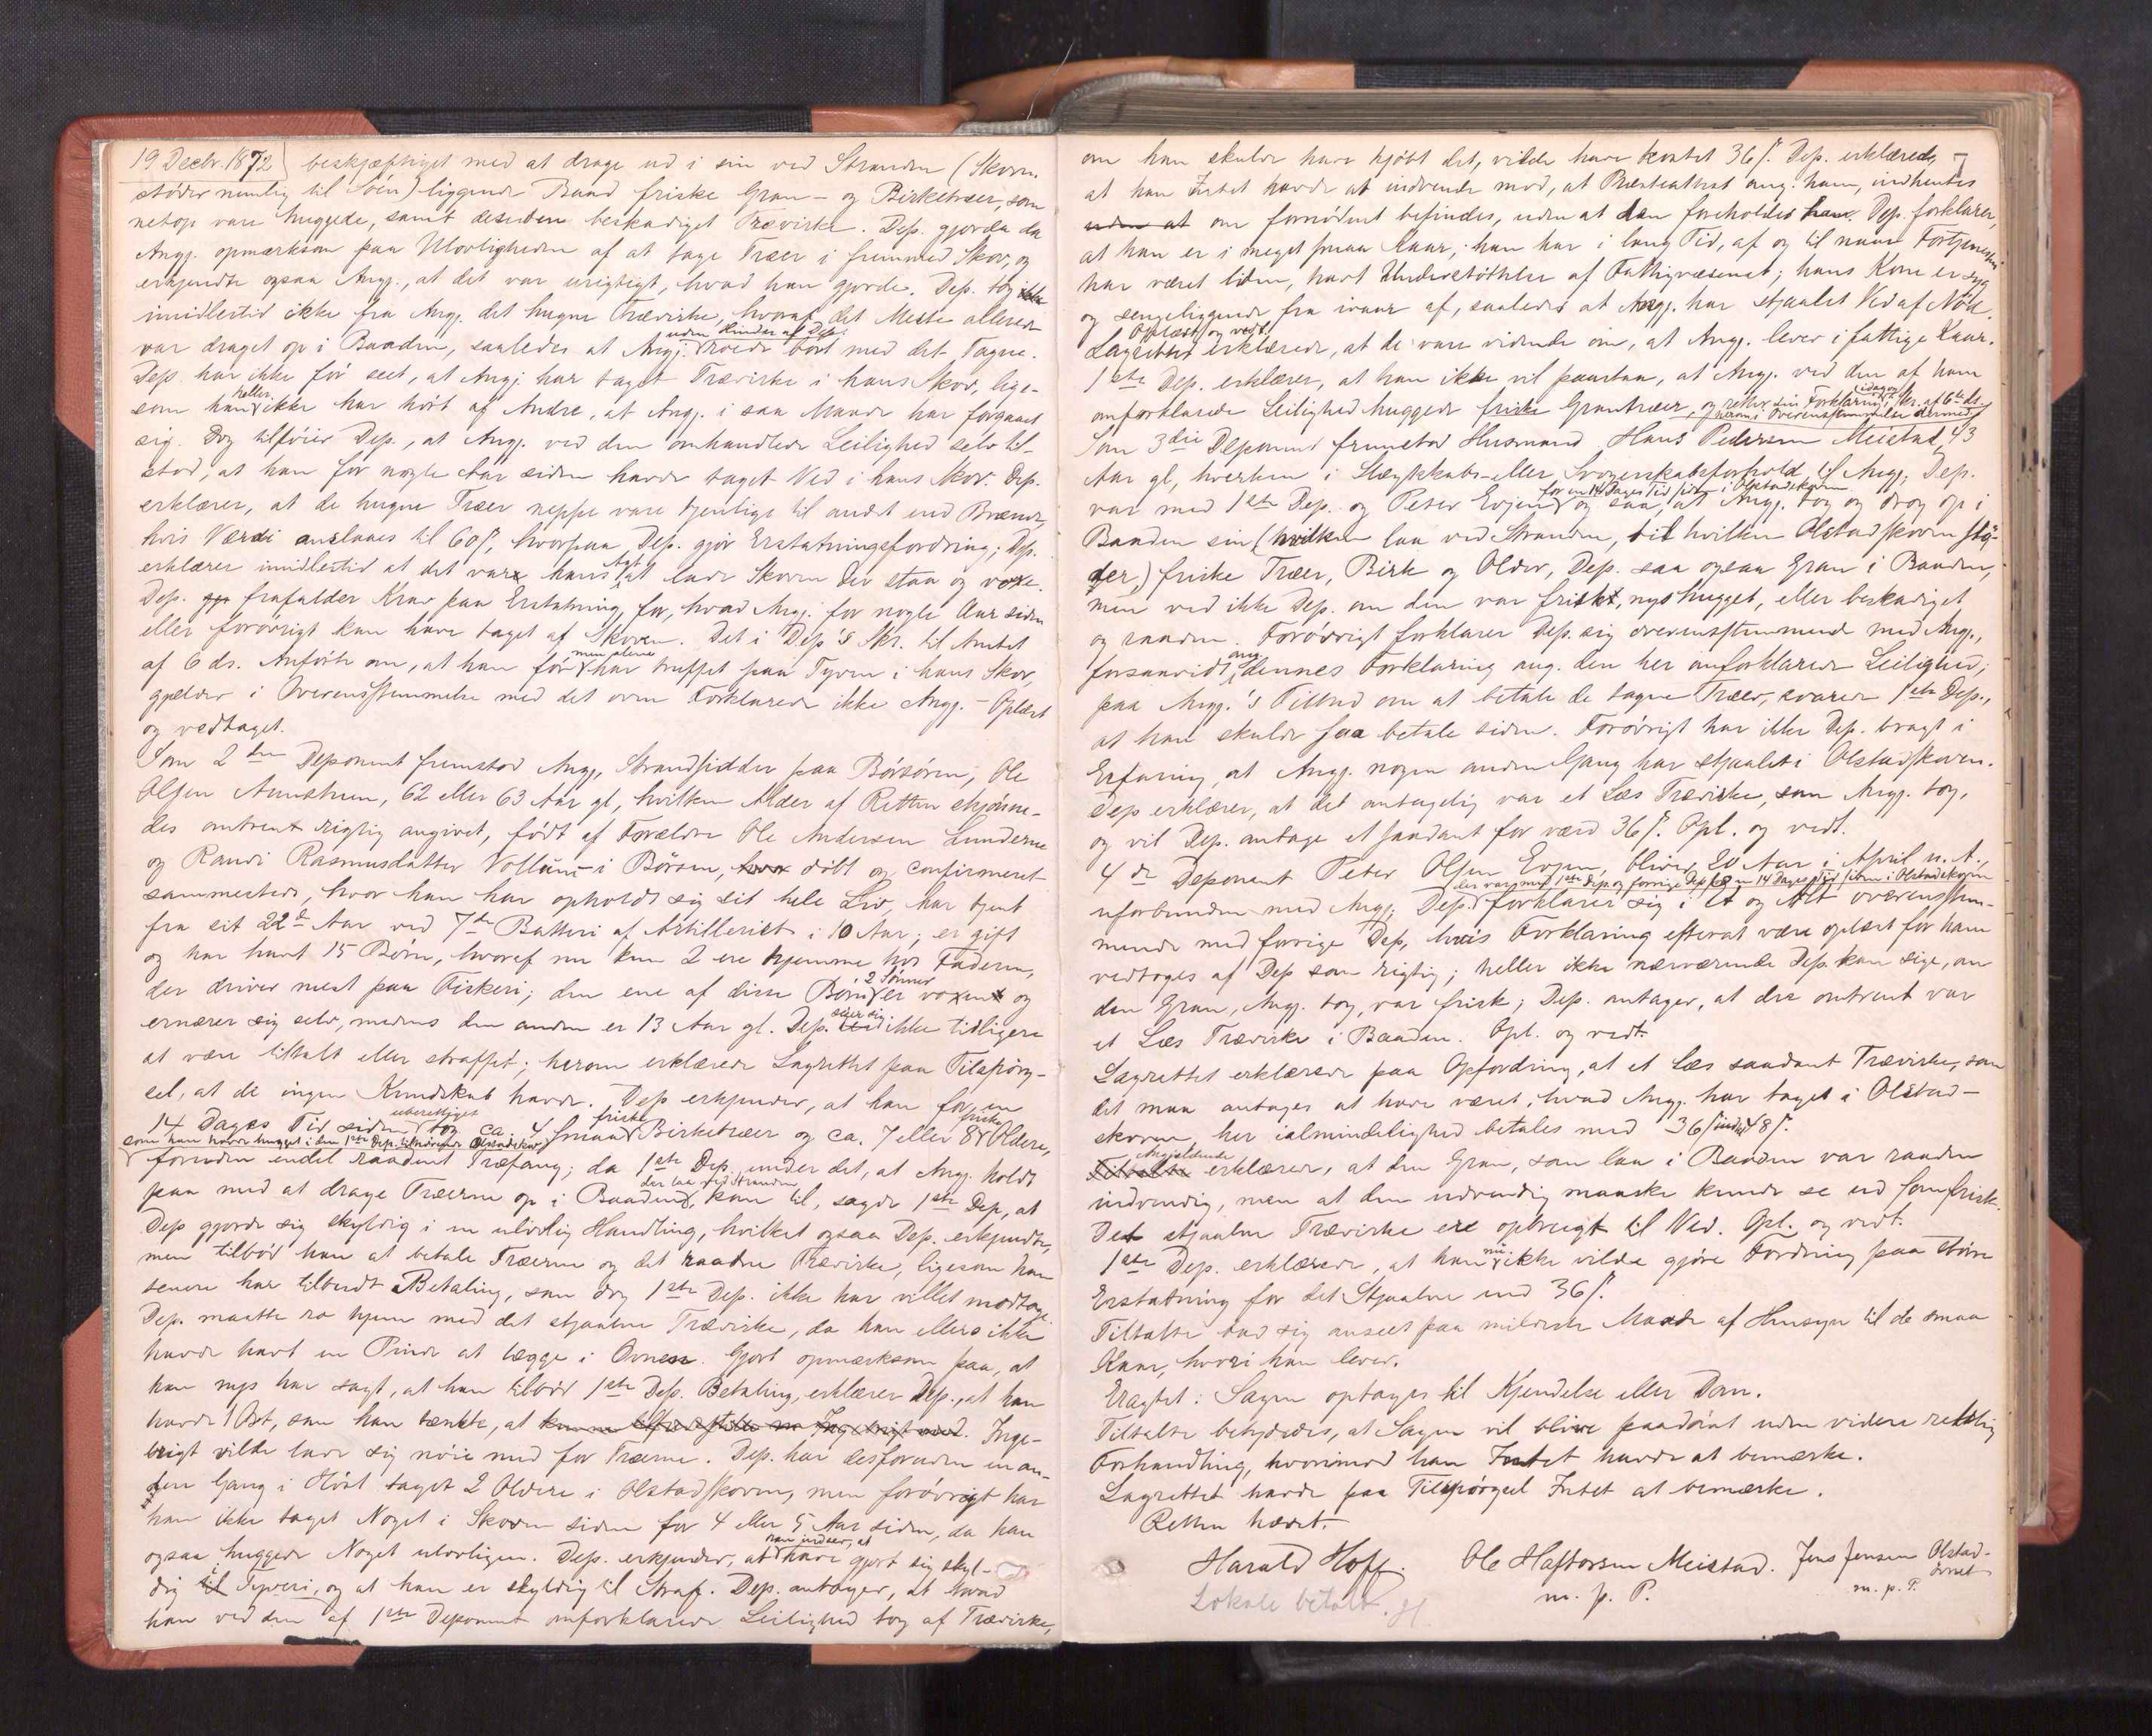 19 Decbr. 1872) beskjæftiget med at drage ud i sin ved Stranden (Skoven
støder nemlig til Søen) liggende Baad friske Gran- og Birketræer, som
netop vare huggede, samt desuden beskadiget Trævirke. Dep. gjorde da
Angj. opmærksom paa Ulovligheden af at tage Træer i fremmed Skov, og
erkjendte ogsaa Angj., at det var urigtigt, hvad han gjorde. Dep. tog
imidlertid ikke fra Angj. det hugne Trævirke, hvoraf det Meste allerede
uden Hinder af Dep.
var draget op i Baaden, saaledes at Angj. roede bort med det Tagne.
Dep. har ikke før seet, at Angj. har taget Trævirke i hans Skov, lige-
heller
som han ikke har hørt af Andre, at Angj. i saa Maade har forgaaet
sig. Dog tilføier Dep., at Angj. ved den omhandlede Leilighed selv til-
stod, at han for nogle Aar siden havde taget Ved i hans Skov. Dep.
erklærer, at de hugne Træer neppe vare tjenlige til andet end Brænde,
hvis Værdi anslaaes til 60 ß, hvorpaa Dep. gjør Erstatningsfordring; Dep.
Agt
erklærer imidlertid at det var hans at lade Skoven der staa og voxe.
Dep. frafalder Krav paa Erstatning for, hvad Angj. for nogle Aar siden
eller forøvrigt kan have taget af Skoven. Det i Dep's Skr. til Amtet
men alene
af 6 ds. Anførte om, at han før har truffet paa Tyven i hans Skov,
gjælder i Overensstemmelse med det oven Forklarede ikke Angj. - Oplæst
og vedtaget.
Som 2den Deponent fremstod Angj. Strandsidder paa Børsøren, Ole
Olsen Aunetrøen, 62 eller 63 Aar gl, hvilken Alder af Retten skjønne-
des omtrent rigtig angivet, født af Forældre Ole Andersen Lunderne
og Randi Rasmusdatter Vollum i Børsen, døbt og confirmeret
sammesteds, hvor han har opholdt sig sit hele Liv, har tjent
fra sit 22de Aar ved 7de Batteri af Artilleriet i 10 Aar; er gift
og har havt 15 Børn, hvoraf nu kun 2 ere hjemme hos Faderen,
2 Sønner
der driver mest paa Fiskeri; den ene af disse Børn er voxen og
siger sig
ernærer sig selv, medens den anden er 13 Aar gl. Dep. ikke tidligere
at være tiltalt eller straffet; herom erklærede Lagrettet paa Tilspørg-
sel, at de ingen Kundskab havde. Dep erkjender, at han for en
uberettiget friske friske
14 Dages Tid siden tog ca. 4 smaa Birketræer og ca. 7 eller 8 Oldere,
som han havde hugget i den 1ste Dep. tilhørende Olstadskov
foruden endel raadent Træfang; da 1ste Dep. under det, at Angj. holdt
der laa ved Stranden
paa med at drage Træerne op i Baaden, kom til, sagde 1ste Dep, at
Dep gjorde sig skyldig i en ulovlig Handling, hvilket ogsaa Dep. erkjendte,
men tilbød han at betale Træerne og det raadne Trævirke, ligesom han
senere har tilbudt Betaling, som dog 1ste Dep. ikke har villet modtage.
Dep. maatte ro hjem med det stjaalne Trævirke, da han ellers ikke
havde havt en Pinde at lægge i Ovnen. Gjort opmærksom paa, at
han nys har sagt, at han tilbød 1ste Dep. Betaling, erklærer Dep., at han
havde 1 Ost, som han tænkte, at Inge-
brigt vilde lade sig nøie med for Træerne. Dep. har desforuden en an-
den Gang i Høst taget 2 Oldere i Olstadskoven, men forøvrigt har
han ikke taget Noget i Skoven siden for 4 eller 5 Aar siden, da han
han indseer, at
ogsaa huggede Noget ulovligen. Dep. erkjender, at have gjort sig skyl-
dig i Tyveri, og at han er skyldig til Straf. Dep. antager, at hvad
han ved den af 1ste Deponent omforklarede Leilighed tog af Trævirke,
7
om han skulde have kjøbt det, vilde have kostet 36 ß. Dep. erklærede,
at han Intet havde at indvende mod, at Præsteattest ang. ham, indhentes
om fornødent befindes, uden at den foreholdes ham. Dep. forklarer,
at han er i meget smaa Kaar; han har i lang Tid, af og til naar Fortjenesten
har været liden, havt Understøttelse af Fattigvæsenet; hans Kone er syg
og sengeliggende fra ivaar af, saaledes at Angj. har stjaalet Ved af Nød.
Oplæst og vedt.
Lagrettet erklærede, at de vare vidende om, at Angj. lever i fattige Kaar.
1ste Dep. erklærer, at han ikke vil paastaa, at Angj. ved den af ham
omforklarede Leilighed huggede friske Grantræer, og retter sin Forklaring idag og i Skr. af 6te ds.
herom i Overensstemmelse dermed
Som 3die Deponent fremstod Husmand Hans Pedersen Meistad, 43
Aar gl, hverken i Slægtskabs- eller Svogerskabsforhold til Angj. Dep.
for en 14 Dages Tid siden i Olstadskoven
var med 1ste Dep. og Peter Evjen og saa, at Angj. tog og drog op i
Baaden sin (hvilken laa ved Stranden, til hvilken Olstadskoven stø-
der) friske Træer, Birk og Older, Dep. saa ogsaa Gran i Baaden,
men ved ikke Dep. om den var frisk, nyshugget, eller beskadiget
og raaden. Forøvrigt forklarer Dep. sig overensstemmende med Angj.,
forsaavidt dennes Forklaring ang. den her omforklarede Leilighed;
paa Angj.'s Tilbud om at betale de tagne Træer, svarede 1ste Dep.,
at han skulde faa betale siden. Forøvrigt har ikke Dep. bragt i
Erfaring, at Angj. nogen anden Gang har stjaalet i Olstadskoven.
Dep erklærer, at det antagelig var et Læs Trævirke, som Angj. tog,
og vil Dep. antage et saadant for værd 36 ß. Opl. og vedt.
4de Deponent Peter Olsen Evjen, bliver 20 Aar i April n. A.,
der var med 1ste Dep og forrige Dep for en 14 Dages Tid siden i Olstadskoven
uforbunden med Angj. Dep. forklarer sig i Et og Alt overensstem-
mende med forrige Dep, hvis Forklaring efterat være oplæst for ham
vedtoges af Dep som rigtig; heller ikke nærværende Dep. kan sige, om
den Gran, Angj. tog, var frisk; Dep. antager, at der omtrent var
et Læs Trævirke i Baaden. Opl. og vedt.
Lagrettet erklærede paa Opfordring, at et Læs saadant Trævirke, som
det maa antages at have været, hvad Angj. har taget i Olstad-
skoven, her ialmindelighed betales med 36 ß indtil 48 ß.
Angjældende
erklærer, at den Gran, som laa i Baaden var raaden
indvendig, men at den udvendig maaske kunde se ud som frisk.
Det stjaalne Trævirke ere opbrugt til Ved. Opl. og vedt.
nu
1ste Dep. erklærede, at han ikke vilde gjøre Fordring paa større
Erstatning for det Stjaalne end 36 ß.
Tiltalte bad sig anseet paa mildeste Maade af Hensyn til de smaa
Kaar, hvori han lever.
Eragtet: Sagen optages til Kjendelse eller Dom.
Tiltalte betydedes, at Sagen vil blive paadømt uden videre retslig
Forhandling, hvorimod han Intet havde at bemærke.
Lagrettet havde paa Tilspørgsel Intet at bemærke.
Retten hævet.
Harald Hoff. Ole Haftorsen Meistad. Jens Jensen Olstad-
m. p. P. m. p. P.
Lokale betalt. H.